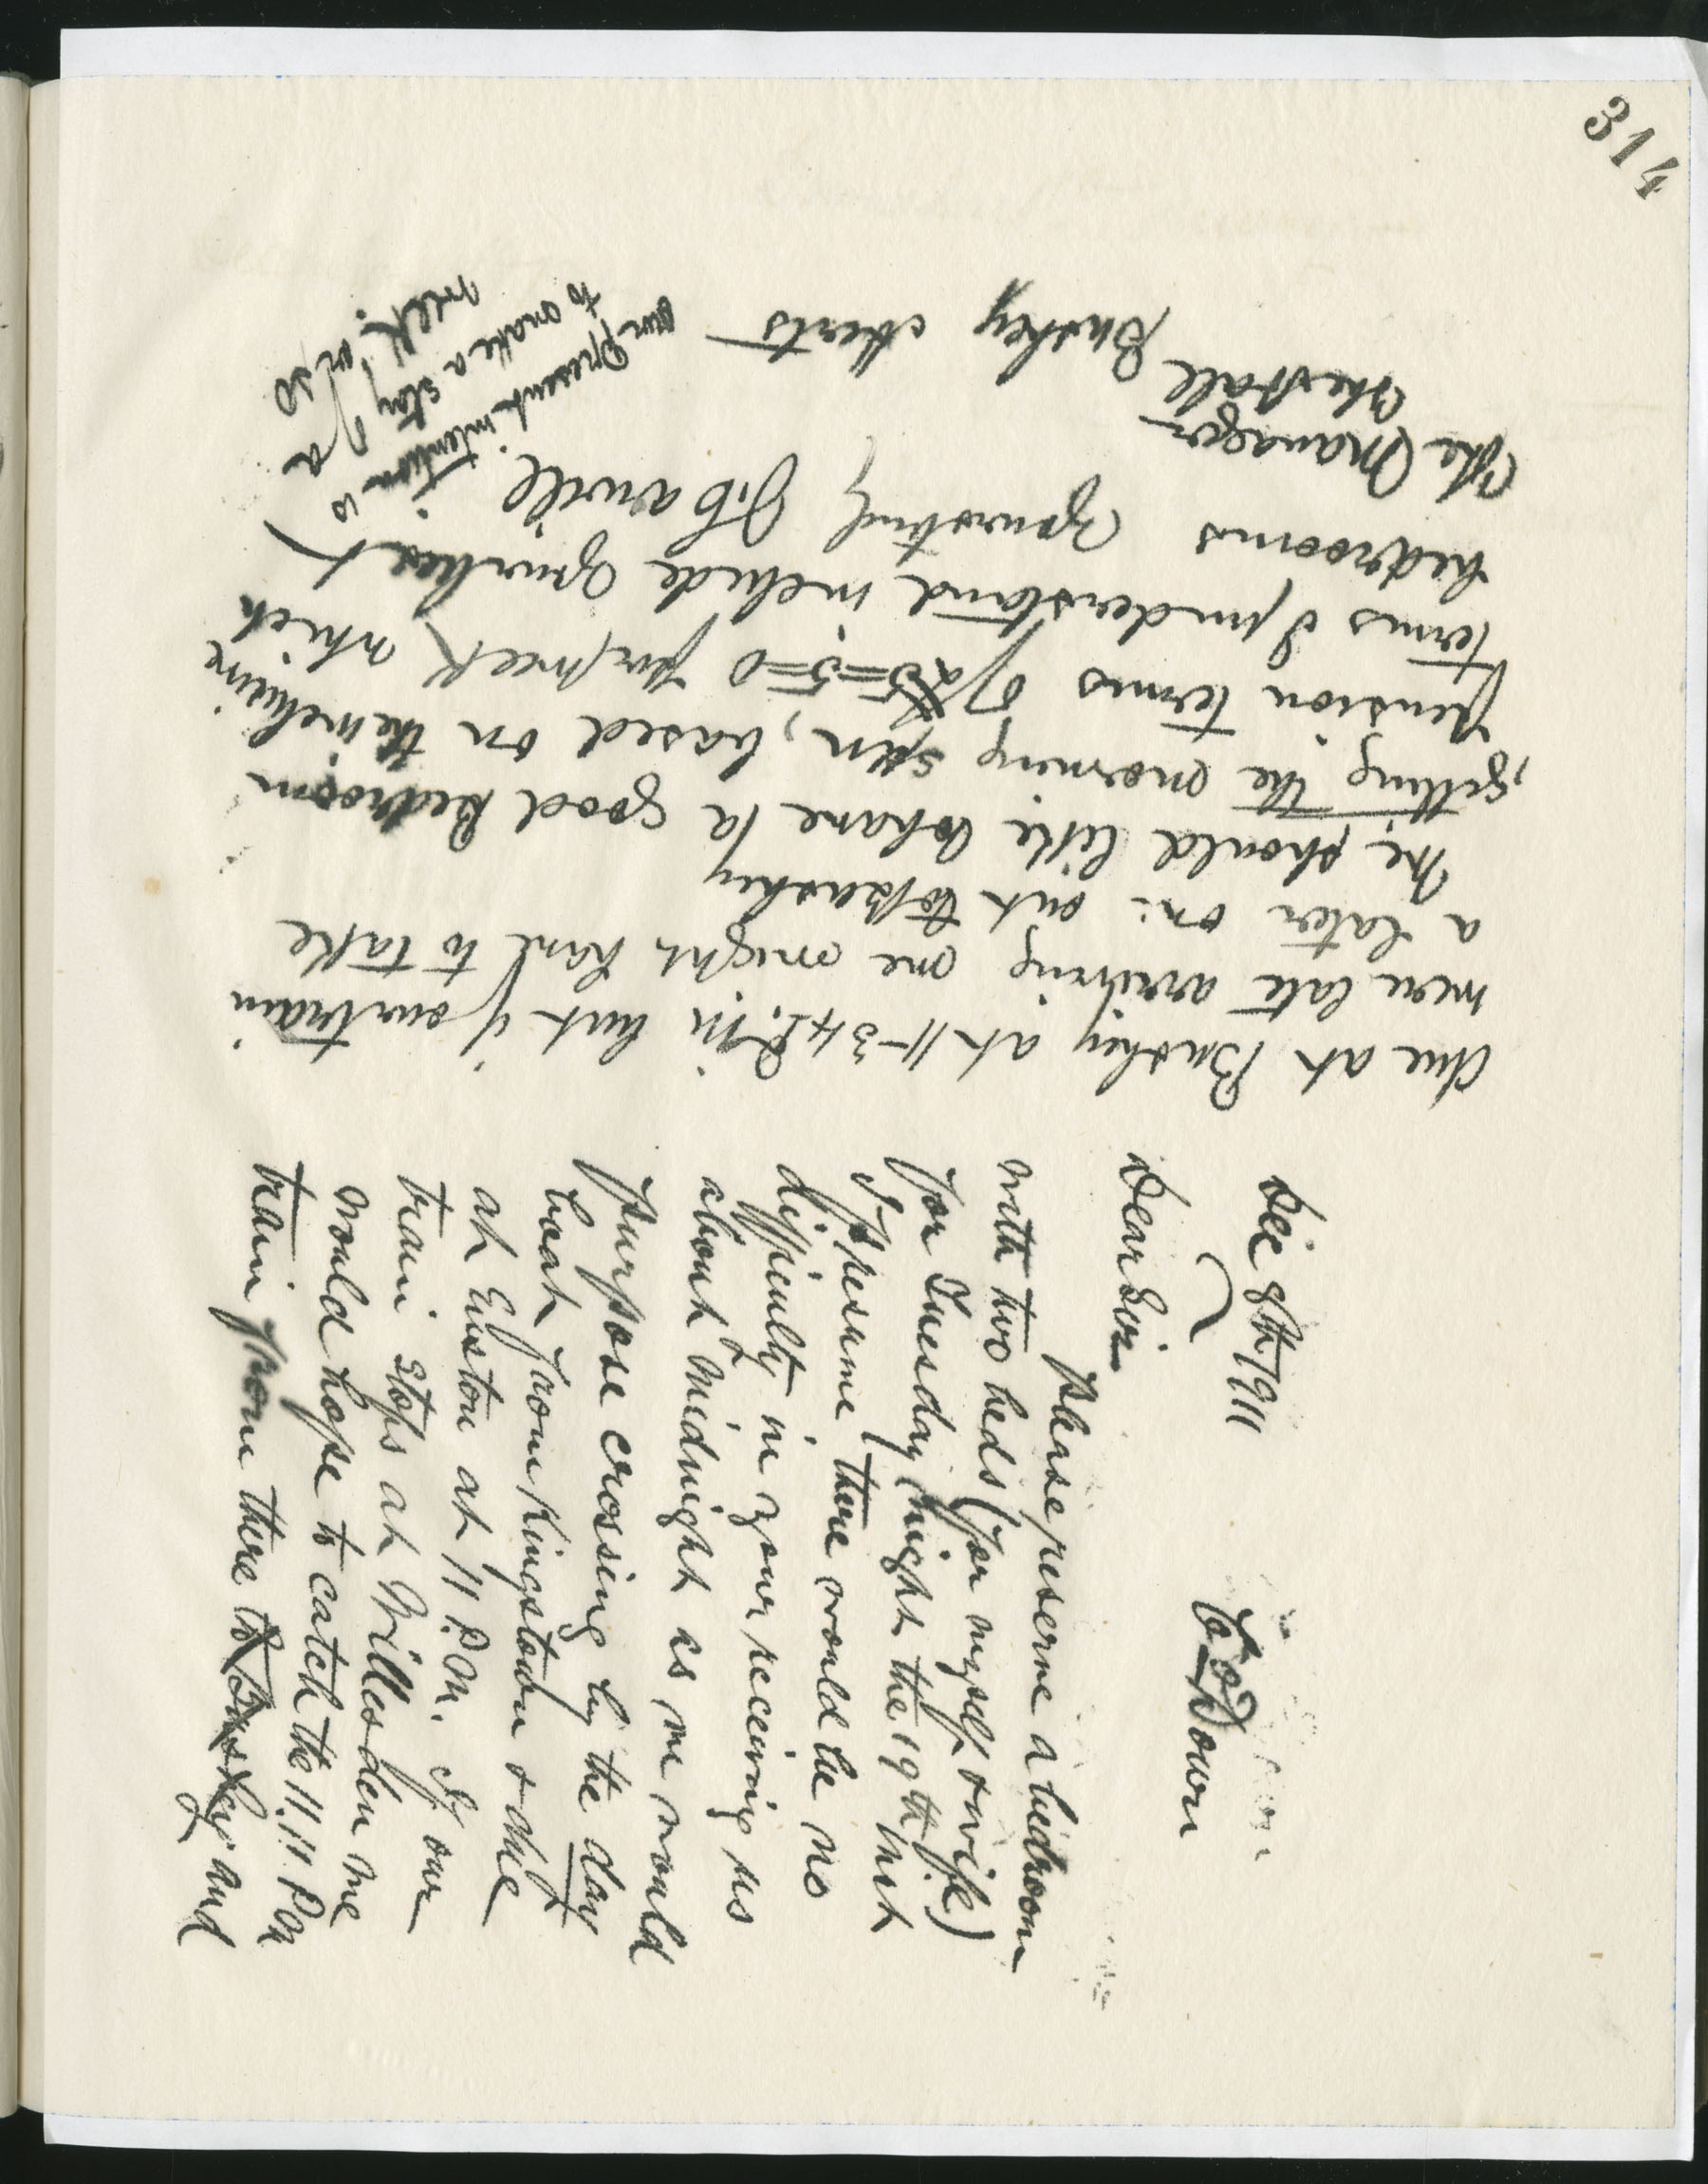 314
Co Down
Dec 8th 1911
Dear Sir
Please reserve a bedroom
with two beds (for myself & wife)
for Tuesday night the 19th Inst
I presume there would be no
difficulty in your receiving us
about midnight as we would
purpose crossing by the day
boat from Kingstown & due
at Euston at 11 P.M. If our
train stops at Willesden we
would hope to catch the 11.11 P.M
train from there to Bushey and
due at Bushey at 11-34 P.M but if our train
were late arriving we might have to take
a later one out to Bushey
We should like to have a good Bedroom
getting the morning sun, based on the inclusive
pension terms of £5=5=0 per week which
terms I understand include
bedrooms Yours truly
The Manager
The Hall Bushey Herts
our present intention is
to make a stay of a
week or so